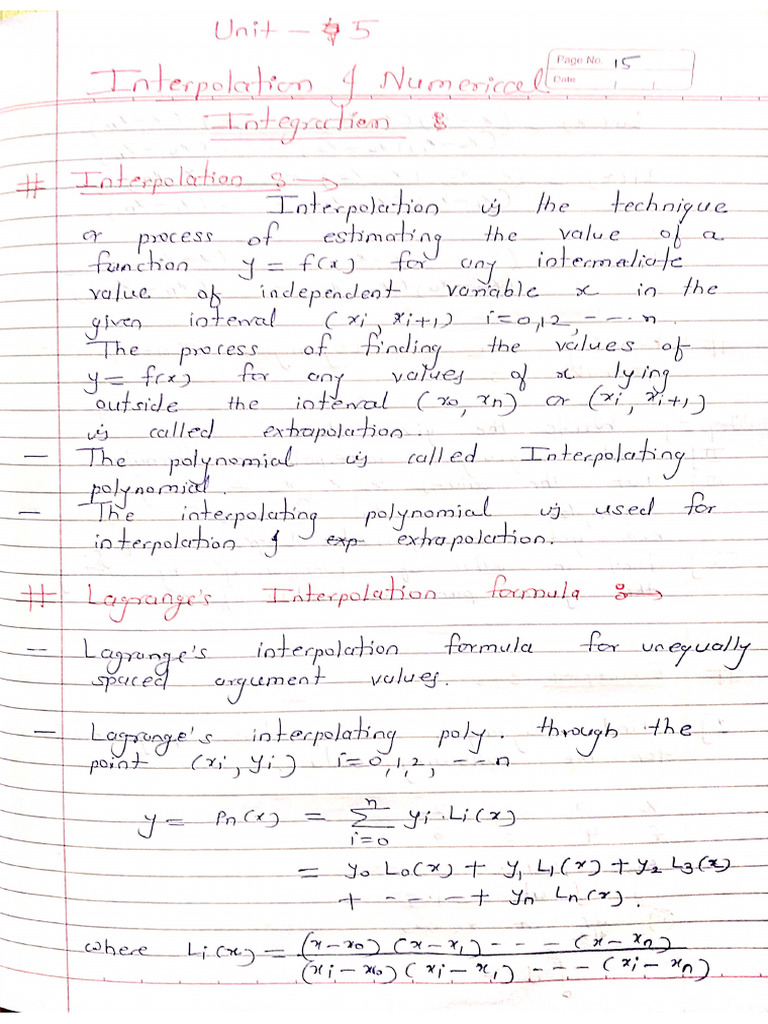 Unit - 5
Page No. 15
Date
Interpolation & Numericcal
Integration :
# Interpolation :→
Interpolation is the technique
or process of estimating the value of a
function y = f(x) for any intermaliate
value of independent variable x in the
given interval (xi, xi+1) i=0,1,2, --- n.
The process of finding the values of
y = f(x) for any values of x lying
outside the interval (x0, xn) or (xi, xi+1)
is called extrapolation.
- The polynomial is called Interpolating
polynomial.
- The interpolating polynomial is used for
interpolation & exp extrapolation.
# Lagrange's Interpolation formula :→
- Lagrange's interpolation formula for unequally
spaced argument values.
- Lagrange's interpolating poly. through the
point (xi, yi) i=0,1,2, --- n
y = Pn(x) = n∑i=0 yi.Li(x)
= y0 L0(x) + y1 L1(x) + y2 L3(x)
+ --- + yn Ln(x).
where Li(x) = (x-x0) (x-x1) --- (x-xn)
(xi-x0) (xi-x1) --- (xi-xn)